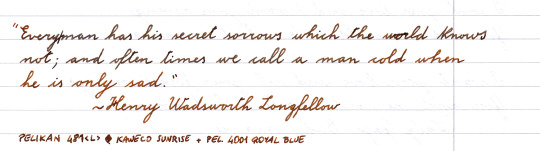 "Everyman has his secret sorrows which the world knows
not; and often times we call a man cold when
he is only sad."
~Henry Wadsworth Longfellow
PELIKAN 481<L> @ KAWECO SUNRISE + PEL 4001 ROYAL BLUE